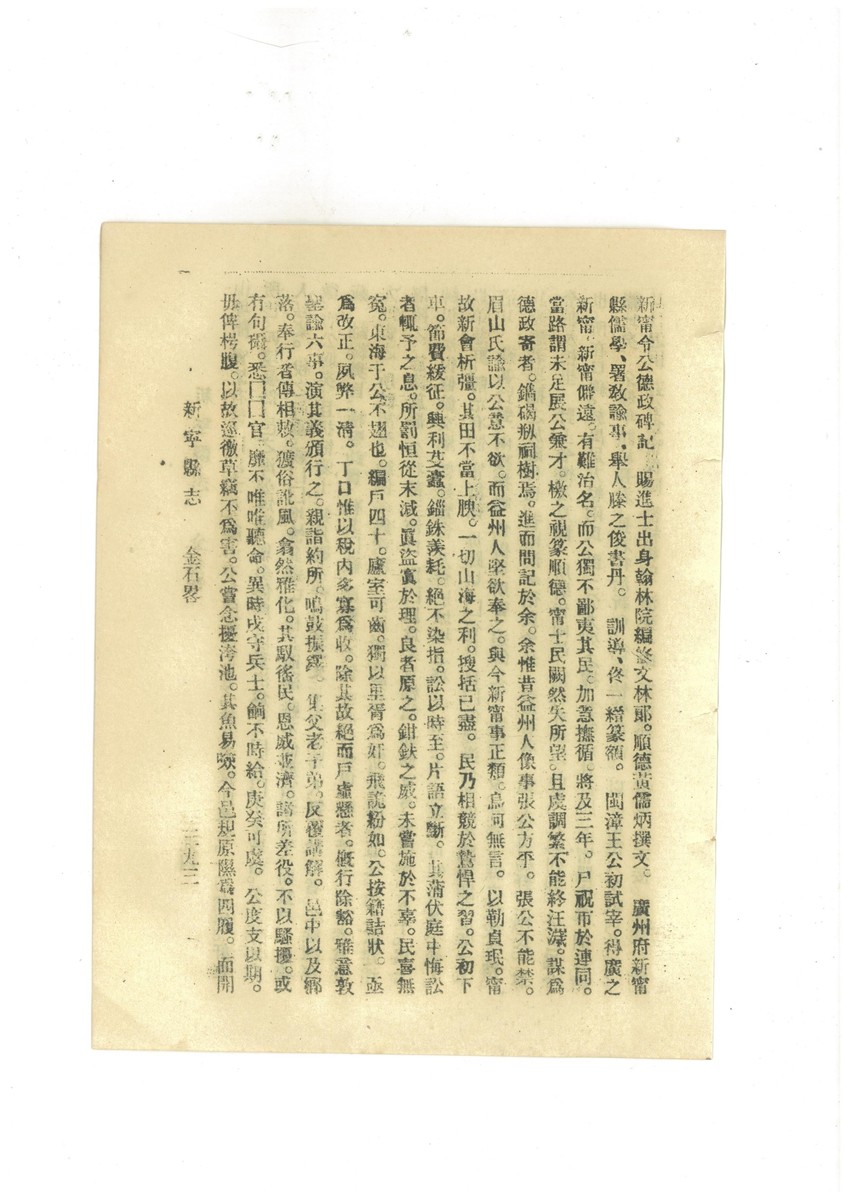 新甯令公德政碑記 賜進士出身翰林院編修文林郎。順德黃儒炳撰文。 廣州府新甯
縣儒學、署敎諭事、舉人滕之俊書丹。 訓導、佟一縉篆額。 閩漳王公初試宰。得廣之
新甯。新甯僻遠。有難治名。而公獨不鄙夷其民。加意撫循。將及三年。尸祝帀於連同。
當路謂未足展公兼才。檄之視篆順德。甯士民闕然失所望。且虞調繁不能終汪濊。謀爲
德政寄者。鐫碣剏祠樹焉。進而問記於余。余惟昔益州人像事張公方平。張公不能禁。
眉山氏諭以公意不欲。而益州人堅欲奉之。與今新甯事正類。烏可無言。以勒貞珉。甯
故新會析彊。其田不當上腴。一切山海之利。搜括已盡。 民乃相競於鷙悍之習。公初下
車。節費緩征。興利芟蠹。錙銖羨耗。絕不染指。訟以時至。片語立斷。 其蒲伏庭中悔訟
者輒予之息。所罰恒從末減。眞盜寘於理。良者原之。鉗釱之威。未嘗施於不辜。民喜無
冤。東海于公不翅也。編戶四十。廬室可齒。獨以里胥爲奸。飛詭紛如。公按籍詰狀。 亟
爲改正。夙弊一淸。 丁口惟以稅内多寡爲收。除其故絕而戶虛懸者。槪行除豁。雅意敦
諭六事。演其義頒行之。親詣約所。鳴鼓振鐸。 集父老子弟。反覆講解。 邑中以及鄉
落。奉行者傳相敕。獷俗訛風。翕然雅化。其馭徭民。恩威並濟。諸所差役。不以騷擾。或
有句攝。悉囗囗官。靡不唯唯聽命。異時戍守兵士。餉不時給。庚癸可虞。 公度支以期。
毋俾枵腹。以故巡徼草竊不爲害。公嘗念擾洿池。其魚易 今邑規原隰爲四履。 而開
新寧縣志 金石畧 三九三